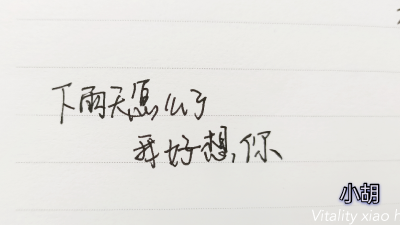 下雨天怎么了
我好想,你
小胡
Vitality xiao h